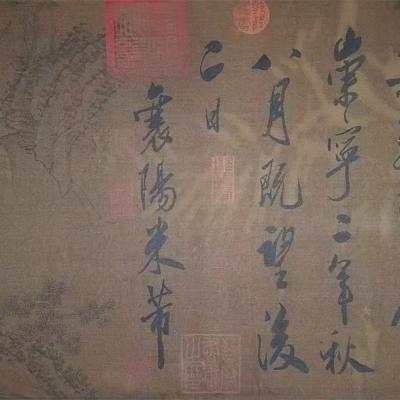 崇寧二年秋
八月既望後
二日
襄陽米芾